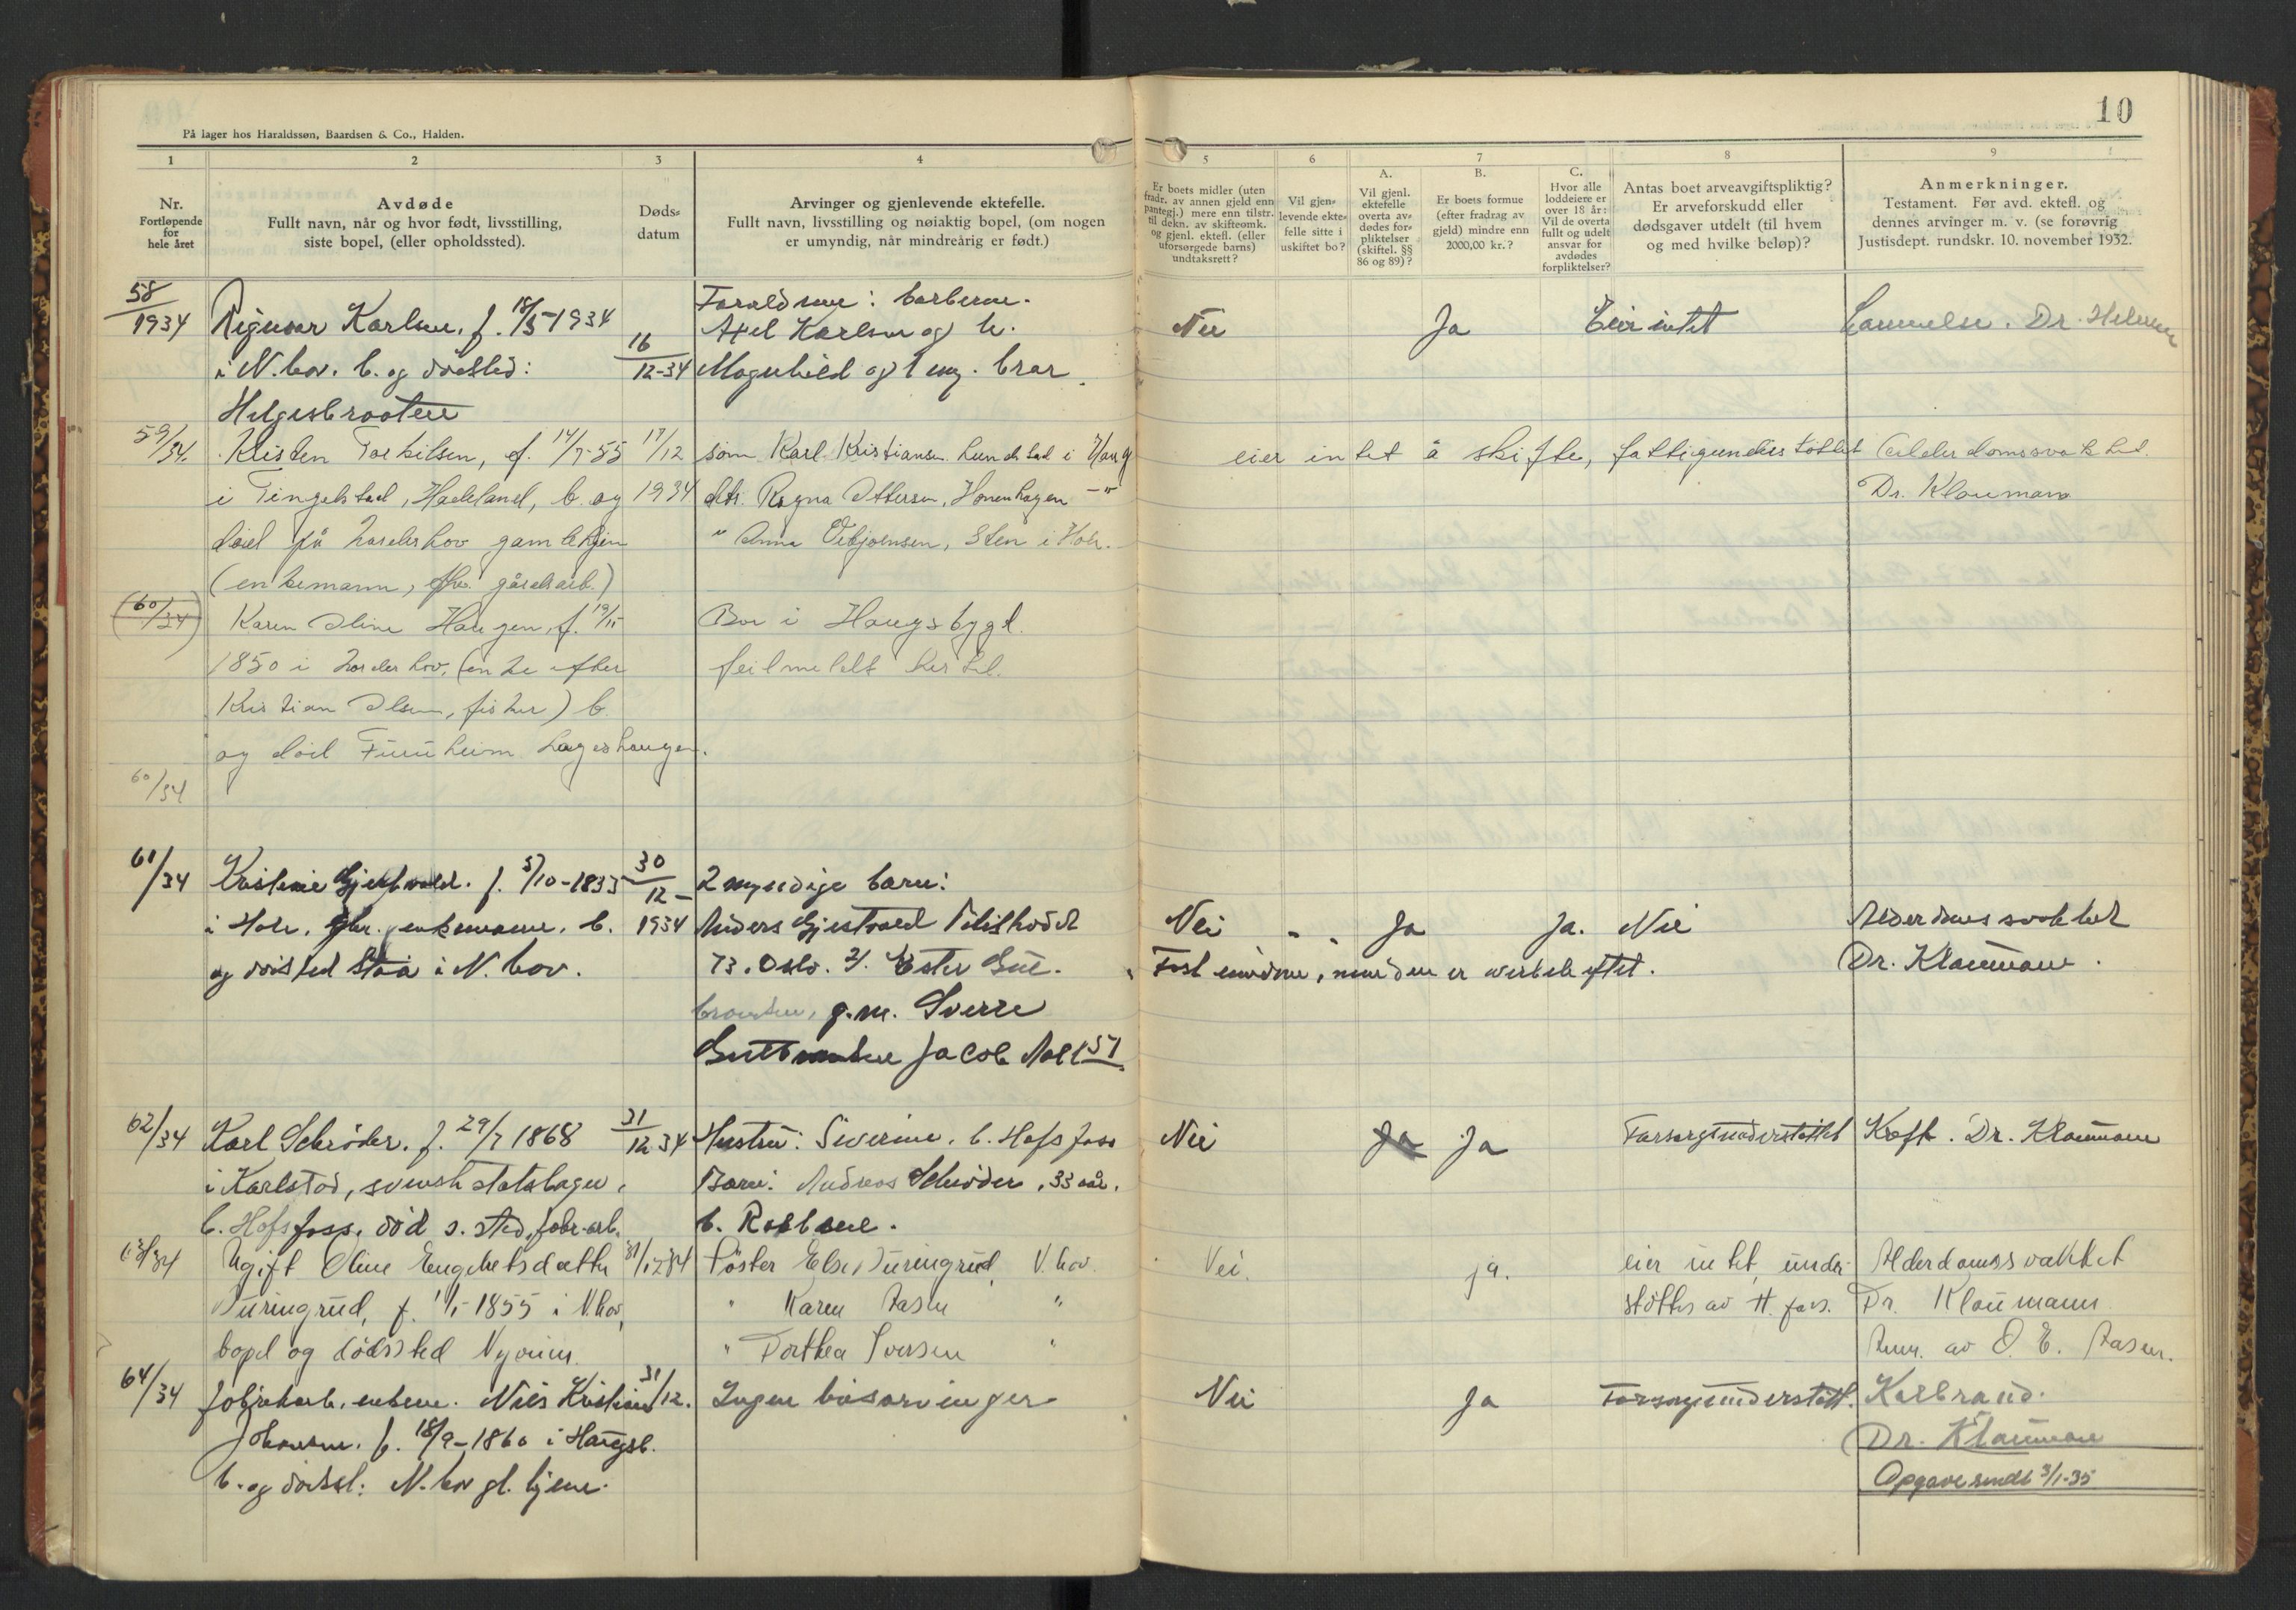 10
På lager hos Haraldssøn, Baardsen & Co., Halden.
1 2 3 4 5 6 7 8 9
Nr.
Fortløpende
for
hele året
Avdøde
Fullt navn, når og hvor født, livsstilling,
siste bopel, (eller opholdssted).
Døds-
datum
Arvinger og gjenlevende ektefelle.
Fullt navn, livsstilling og nøiaktig bopel, (om nogen
er umyndig, når mindreårig er født.)
Er boets midler (uten
fradr. av annen gjeld enn
pantegj.) mere enn tilstr.
til dekn. av skifteomk.
og gjenl. ektefl. (eller
uforsørgede barns)
undtaksrett?
Vil gjen-
levende ekte-
felle sitte i
uskiftet bo?
A.
Vil gjenl.
ektefelle
overta av-
dødes for-
pliktelser
(skiftel. §§
86 og 89)?
B.
Er boets formue
(efter fradrag av
gjeld) mindre enn
2000,00 kr.?
C.
Hvor alle
loddeiere er
over 18 år:
Vil de overta
fullt og udelt
ansvar for
avdødes
forpliktelser?
Antas boet arveavgiftspliktig?
Er arveforskudd eller
dødsgaver utdelt (til hvem
og med hvilke beløp)?
Anmerkninger.
Testament. Før avd. ektefl. og
dennes arvinger m. v. (se forøvrig
Justisdept. rundskr. 10. november 1932.
58/1934
Karlsen, f. 18/5-1934
i N.hov. b. og dødsted:
16/12-34
Foreldrene:
Axel Karlsen og h.
Magnhild og 1 brør
Nei Ja Eier intet Dr.
59/34.
Kristen Torkilsen, f. 14/7-55
i Tingelstad, Hadeland, b. og
død på Norderhov gamlehjem
(enkemann, fhv. gårdsarb.)
17/12
1934
søn Karl Kristiansen i Haug
dtr. Ragna Ottersen, Hønenhagen -"-
" Anna Vebjørnsen, Sten i Hole.
eier intet å skifte, fattigunderstøttet
Alderdomssvakhet.
Dr. Klaumann
(60/34)
Karen Oline Haugen, f. 19/11
1850 i Norderhov, (enke efter
Kristian Olsen, fisker) b.
og død Furuheim
Bor i Haugsbygd.
feilmeldt hertil.
60/34
61/34
f. 5/10-1833
i Hole, enkemann. b.
og dødsted Staa i N. hov.
30/12-
1934
2 myndige barn:
Anders
73. Oslo. 2. Ester
g.m. Sverre
Jacob Aall 51.
Nei " " Ja Ja. Nei
er ubeheftet.
Alderdomssvakhet
Dr. Klaumann.
62/34
Karl Schrøder. f. 29/7 1868
i Karlstad, svensk statsborger.
b. Hofsfoss, død s. sted, fabr.arb.
31/12-34
Hustru: Siverine. b. Hofsfoss
Barn: Andreas Schrøder, 33 år.
b.
Nei Ja Ja Forsorgsunderstøttet
Kreft. Dr. Klaumann
63/34
Ugift Oline Engebretsdatter
f. 1/5 1855 i N.hov,
bopel og dødssted
31/12 34
Søster Else N.hov.
" Karen Aasen "
" Dorthea Iversen "
Nei. ja.
eier intet, under-
støttes av H. fors.
Alderdomssvakhet
Dr. Klaumann
Anm. av O. E. Aasen.
64/34
Fabrikkarb. enkem. Nils Kristian
Johansen. f. 18/9-1860 i Haugsb.
b. og dødsst: N.hov gl. hjem.
31/12.
Ingen livsarvinger
Nei Ja Forsorgsunderstøtt.
Koldbrand.
Dr. Klaumann
Opgave sendt 3/1-35